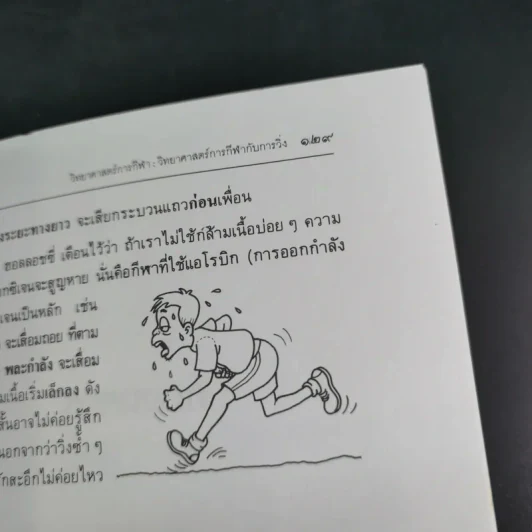 วิทยาศาสตร์การกีฬา : วิทยาศาสตร์การกีฬากับการวิ่ง ๑๒๙
งระยะทางยาว จะเสียกระบวนแถวก่อนเพื่อน
ฮอลลอซซี่ เตือนไว้ว่า ถ้าเราไม่ใช้กล้ามเนื้อบ่อย ๆ ความ
กซิเจนจะสูญหาย นั่นคือกีฬาที่ใช้แอโรบิก (การออกกำลัง
เจนเป็นหลัก เช่น
จะเสื่อมถอย ที่ตาม
พละกำลัง จะเสื่อม
มเนื้อเริ่มเล็กลง ดัง
สั้นอาจไม่ค่อยรู้สึก
นอกจากว่าวิ่งซ้ำ ๆ
ักสะอีกไม่ค่อยไหว